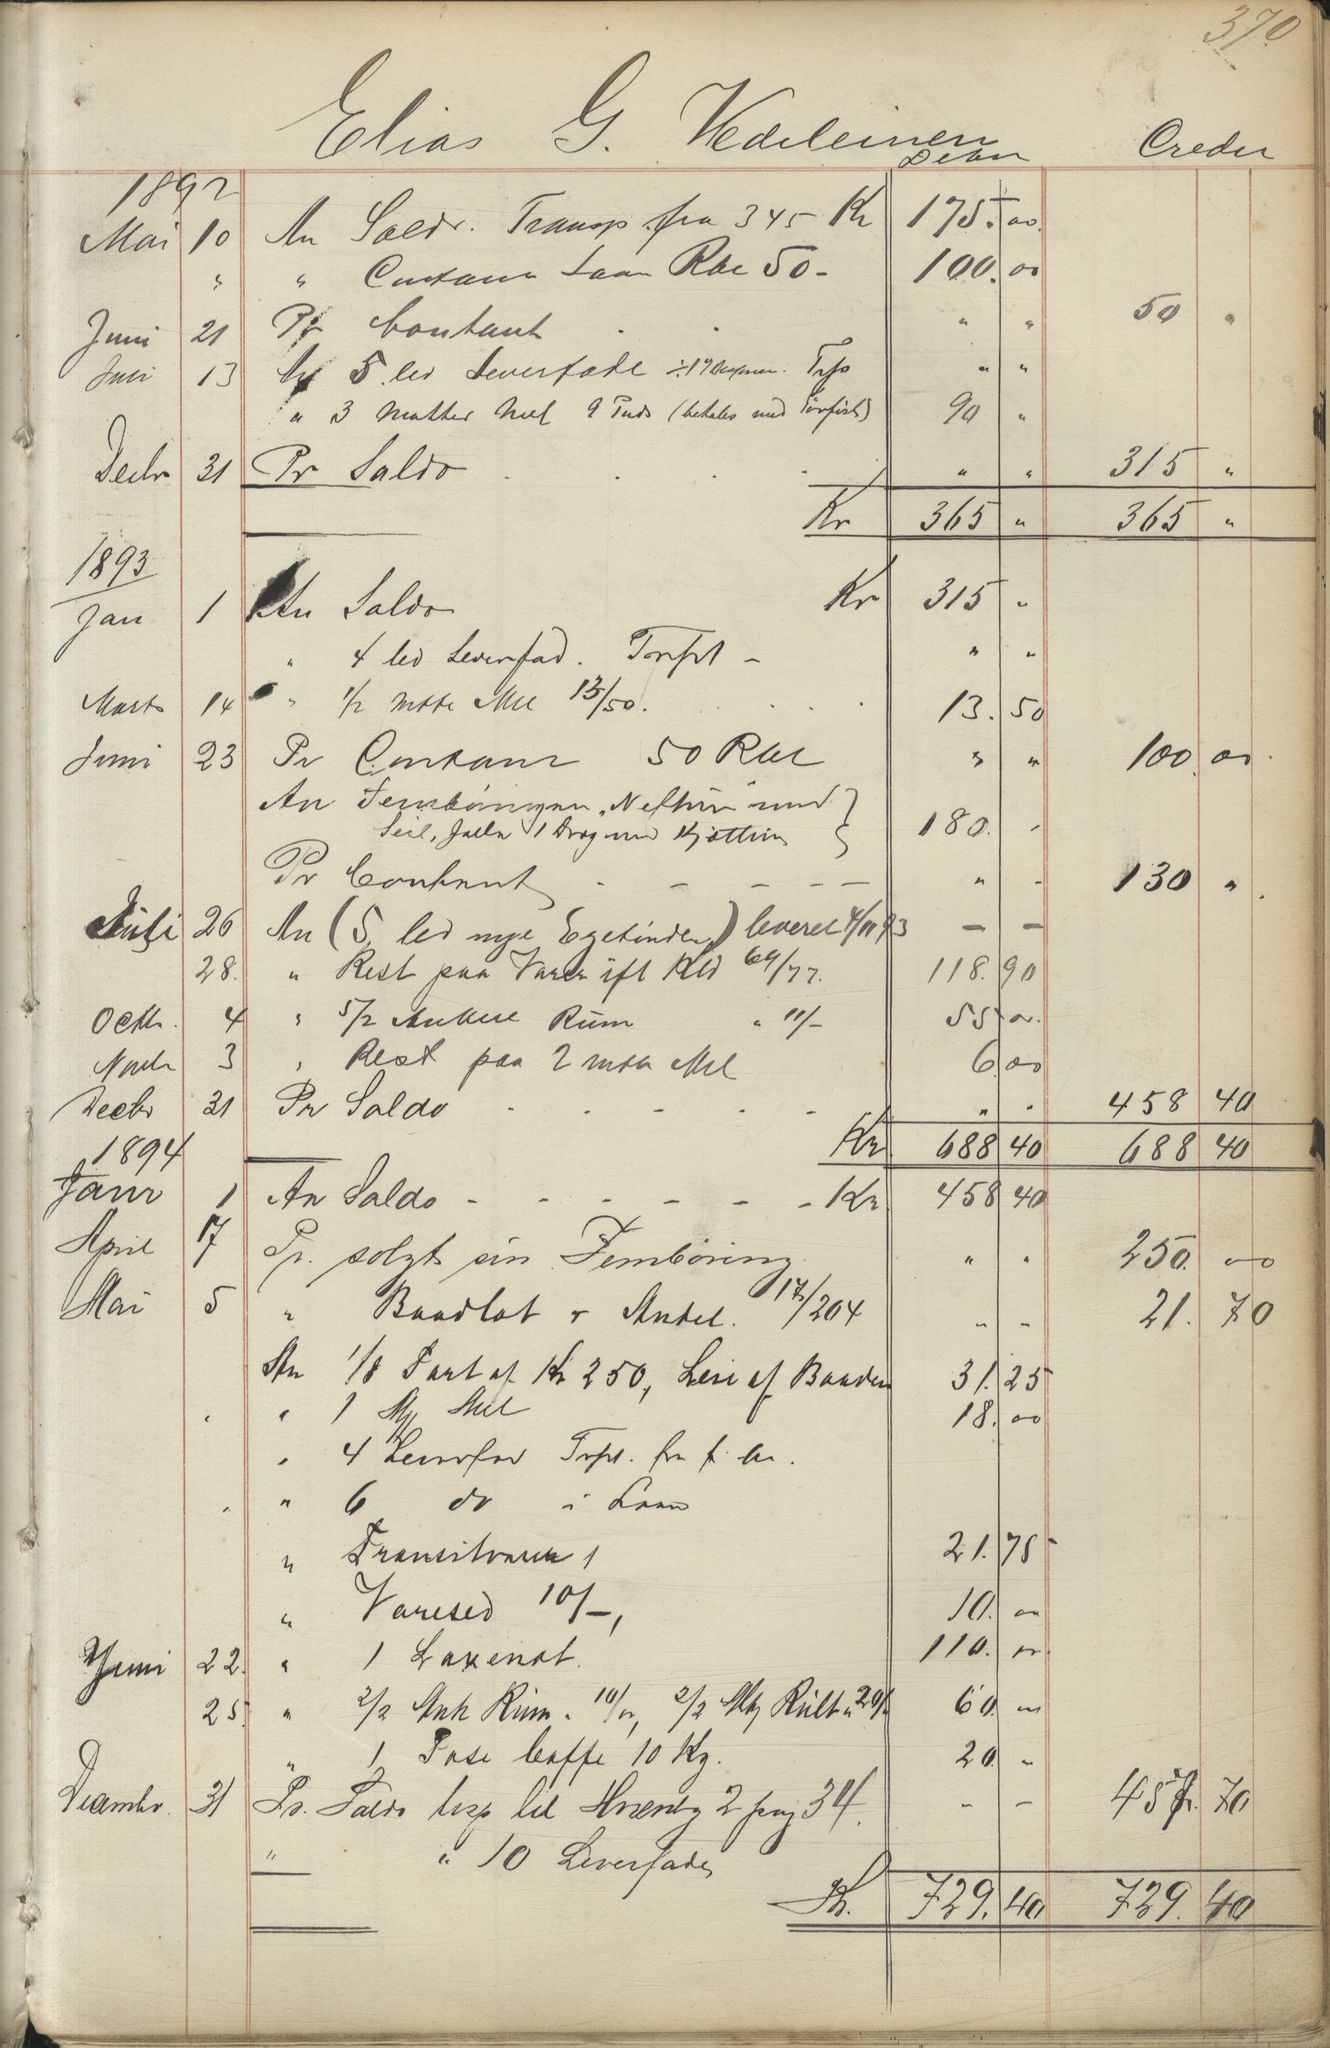 370
Elias G. Vedeleinen
Debet Credit
1892
Mai 10 An Saldo. Transp. fra 345 Kr 175. 00.
" " Contant Laan Rbe 50 - 100. 00
Juni 21 Pr Contant . . " " 50 "
Juli 13 An 5 led Leverfade Trp " "
" 3 Matter Mel 9 Puds (betales med Törfisk) 90 "
Decbr 31 Pr Saldo . . . " " 315 "
Kr 365 " 365 "
1893
Jan 1 An Saldo Kr 315 "
" 4 led Leverfad. Tönfst - " "
Marts 14 " 1/2 matte Mel 13/50. . . . . 13. 50
Juni 23 Pr Contant 50 Rbl " " 100. 00.
An Femböringen "Neptun" med }
Seil, 1 Drag med Kjætting } 180. "
Pr Contant - - - - - " - 130 "
Juli 26 An (5 led nye Egetönder) leveret 4/10 93 - -
28. " Rest paa Varer ift Kld 69/77. 118. 90
Octbr. 4 " 5/2 Ankere Rum " 11/- 55 00.
Novbr 3 " Rest paa 2 mtr Mel 6. 00
Decbr 31 Pr Saldo - - - - - " " 458 40
Kr 688 40 688 40
1894
Janr 1 An Saldo - - - - - - Kr 458 40
April 17 Pr. solgt sin Femböring " " 250. 00
Mai 5 " Baadlot & Andel. 17/204 " " 21. 70
An 1/8 Part af Kr 250, Leie af Baaden 31. 25
" " 1 Mt Mel 18. 00
" 4 Leverfad Trpt. fra f. Aar.
" " 6 do i Laan
" Transitvarer 1 21. 75
" Varesed 10/-, 10. 00
" 1 Laxenot. 110. 00
Juni 22. 
25. " 2/2 Ank Rum " 10/00, 2/2 Mtg Rült " 20/- 60. 00
" 1 Pose Caffe 10 Kg. 20. "
Decembr. 31 Pr. Saldo trsp til Hovedbg 2 pag 34. - - 457. 70
" " 10 Leverfade
Kr. 729. 40 729. 40